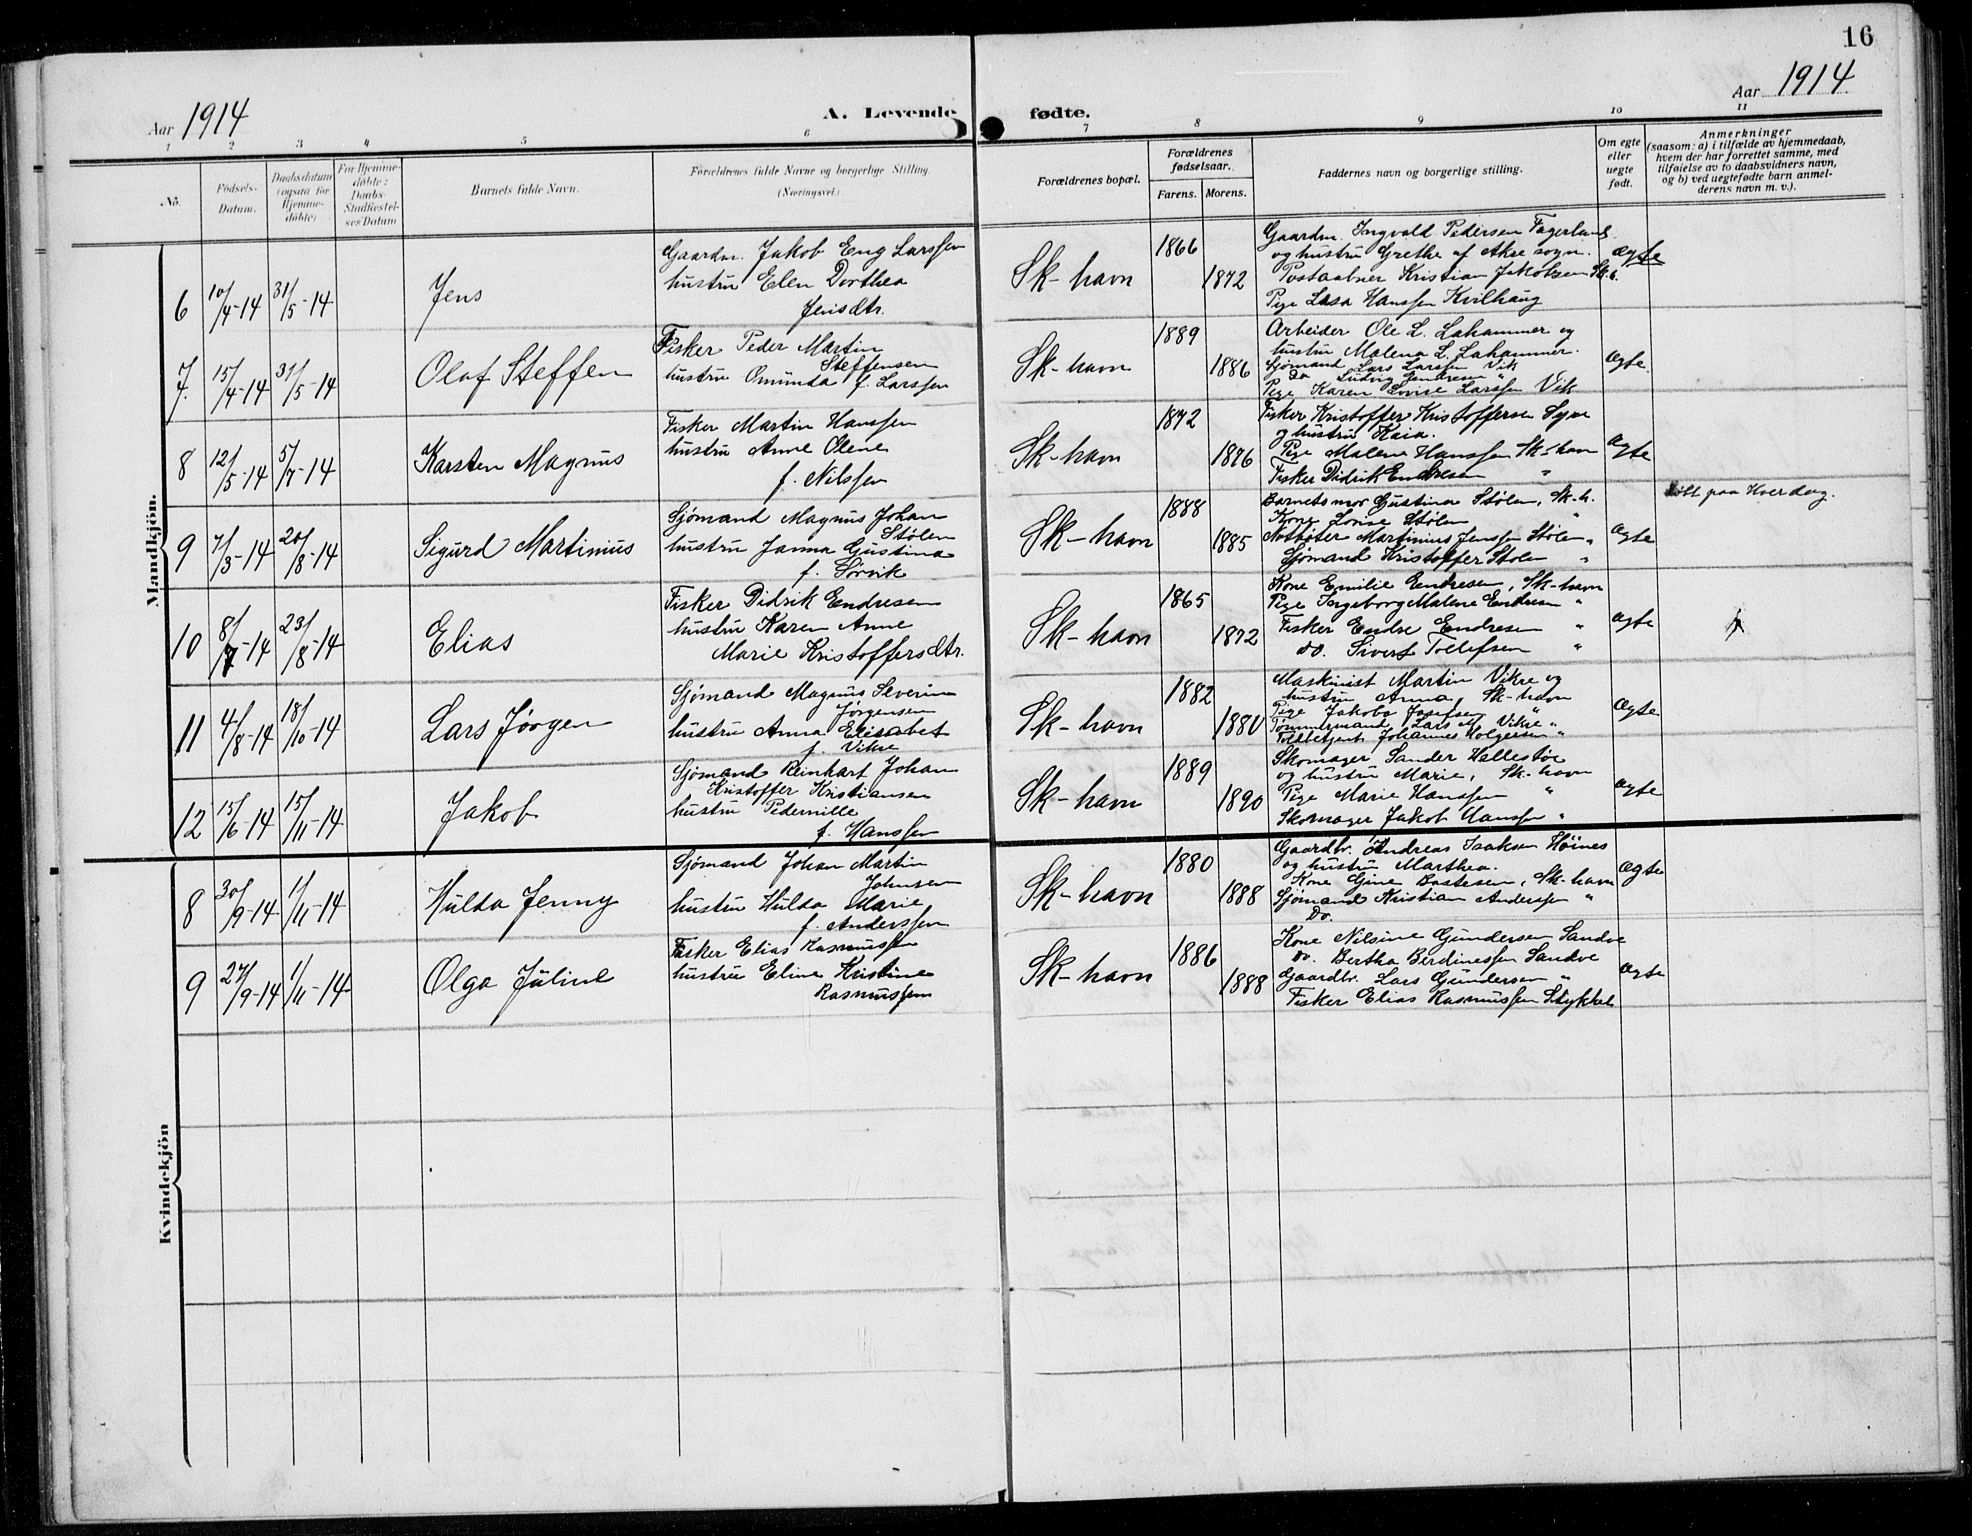 16
Aar 1914
A. Levende fødte.
Aar 1914
1 2 3 4 5 6 7 8 9 10 11
No.
Fødsels-
Datum.
Daabsdatum
(ogsaa for
Hjemme-
døbte)
For Hjemme-
døbte:
Daabs-
Stadfestel-
ses Datum
Barnets fulde Navn.
Forældrenes fulde Navne og borgerlige Stilling
(Næringsvei)
Forældrenes bopæl.
Forældrenes
fødselsaar.
Farens. Morens.
Faddernes navn og borgerlige stilling.
Om egte
eller
uegte
født.
Anmerkninger
(saasom: a) i tilfælde av hjemmedaab,
hvem der har forrettet samme, med
tilføielse av to daabsvidners navn,
og b) ved uegtefødte barn anmel-
derens navn m. v.).
Mandkjön.
6 10/4-14 31/5-14 Jens
Gaardm. Jakob Eng Larssen
hustru Elen Dorthea
Jensdtr.
Sk-havn 1866 1872
Gaardm. Ingvald Pedersen Fagerland
og hustru Grethe af Akre sogn.
Postaabner Kristian Jakobsen Sk.h.
Pige Lasa Hanssen Kvilhaug
ægte
7. 15/4-14 31/5-14 Olaf Steffen
Fisker Peder Martin
Steffensen
hustru Omunda f. Larssen
Sk-havn 1889 1886
Arbeider Ole L. Lahammer og
hustru Malena L. Lahammer.
Sjømand Lars Larssen Vik
Do Ludvig Endresen "
Pige Karen Lovise Larssen Vik
ægte
8 12/5-14 5/7-14 Karsten Magnus
Fisker Martin Hanssen
hustru Anne Olene
f. Nilssen
Sk-havn 1872 1876
Fisker Kristoffer Kristoffersen Syre
og hustru Kaia.
Pige Malene Hanssen Sk-havn
Fisker Didrik Endresen "
ægte
9 7/3-14 20/8-14 Sigurd Martinius
Sjømand Magnus Johan
Stølen
hustru Janna Gustina
f. Sørvik
Sk-havn 1888 1885
Barnets mor Gustina Stølen, Sk-h.
Kone Lovise Stølen "
Notbøter Martinius Jenssen Stølen "
Sjømand Kristoffer Stølen "
ægte
døbt paa Hverdag.
10 8/7-14 23/8-14 Elias
Fisker Didrik Endresen
hustru Karen Anne
Marie Kristoffersdtr.
Sk-havn 1865 1872
Kone Emilie Endresen, Sk-havn
Pige Ingeborg Malene Endresen "
Fisker Endre Endresen "
do. Sivert Tollefsen "
ægte
11 4/8-14 18/10-14 Lars Jørgen
Sjømand Magnus Severin
Jørgensen
hustru Anna Elisabet
f. Vikre
Sk-havn 1882 1880
Maskinist Martin Vikre og
hustru Anna, Sk-havn
Pige Jakobe Josefsen "
Tømmermand Lars M Vikre "
Tolbetjent Johannes Holgersen "
ægte
12 15/6-14 15/11-14 Jakob
Sjømand Reinhart Johan
Kristoffer Kristiansen
hustru Pedernille
f. Hanssen
Sk-havn 1889 1890
Skomager Sander Hallestøe
og hustru Marie, Sk-havn
Pige Marie Hanssen "
Skomager Jakob Hanssen "
ægte
Kvindekjön
8 30/9-14 1/11-14 Hulda Jenny
Sjømand Johan Martin
Johnsen
hustru Hulda Marie
f. Anderssen
Sk-havn 1880 1888
Gaardbr. Andreas Isaksen Høines
og hustru Marthea.
Kone Gine Bostesen, Sk-havn
Sjømand Kristian Anderssen "
Do.
ægte
9 27/9-14 1/11-14 Olga Juline
Fisker Elias Rasmussen
hustru Eline Kristine
Rasmussen
Sk-havn 1886 1888
Kone Nilsine Gundersen Sandve
do. Bertha Berdinessen Sandve
Gaardbr. Lars Gundersen "
Fisker Elias Rasmussen Stykket
ægte